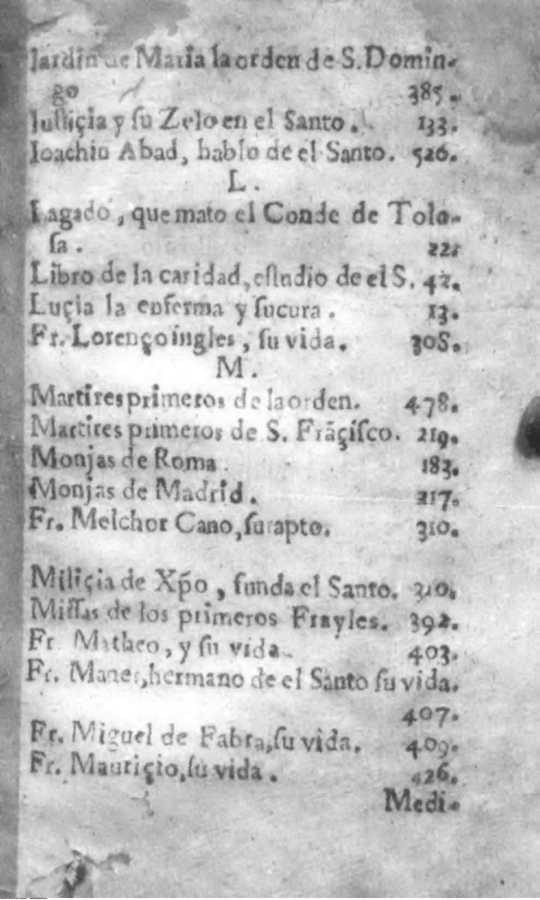 Jardin de Maria la orden de S. Domin-
go 385.
Iustiçia y su Zelo en el Santo. 133.
Ioachin Abad, hablo de el Santo. 526.
L.
Lagado, que mato el Conde de Tolo-
sa. 221
Libro de la caridad, estudio de el S. 42.
Luçia la enferma y sucura. 13.
Fr. Lorenço ingles, su vida. 308.
M.
Martires primeros de la orden. 478.
Martires primeros de S. Frãçisco. 219.
Monjas de Roma. 183.
Monjas de Madrid. 217.
Fr. Melchor Cano, su rapto. 310.
Miliçia de Xp̃o, funda el Santo. 310.
Missas de los primeros Frayles. 392.
Fr. Matheo, y su vida. 403.
Fr. Manes, hermano de el Santo su vida.
407.
Fr. Miguel de Fabra, su vida. 409.
Fr. Mauriçio, su vida. 426.
Medi-